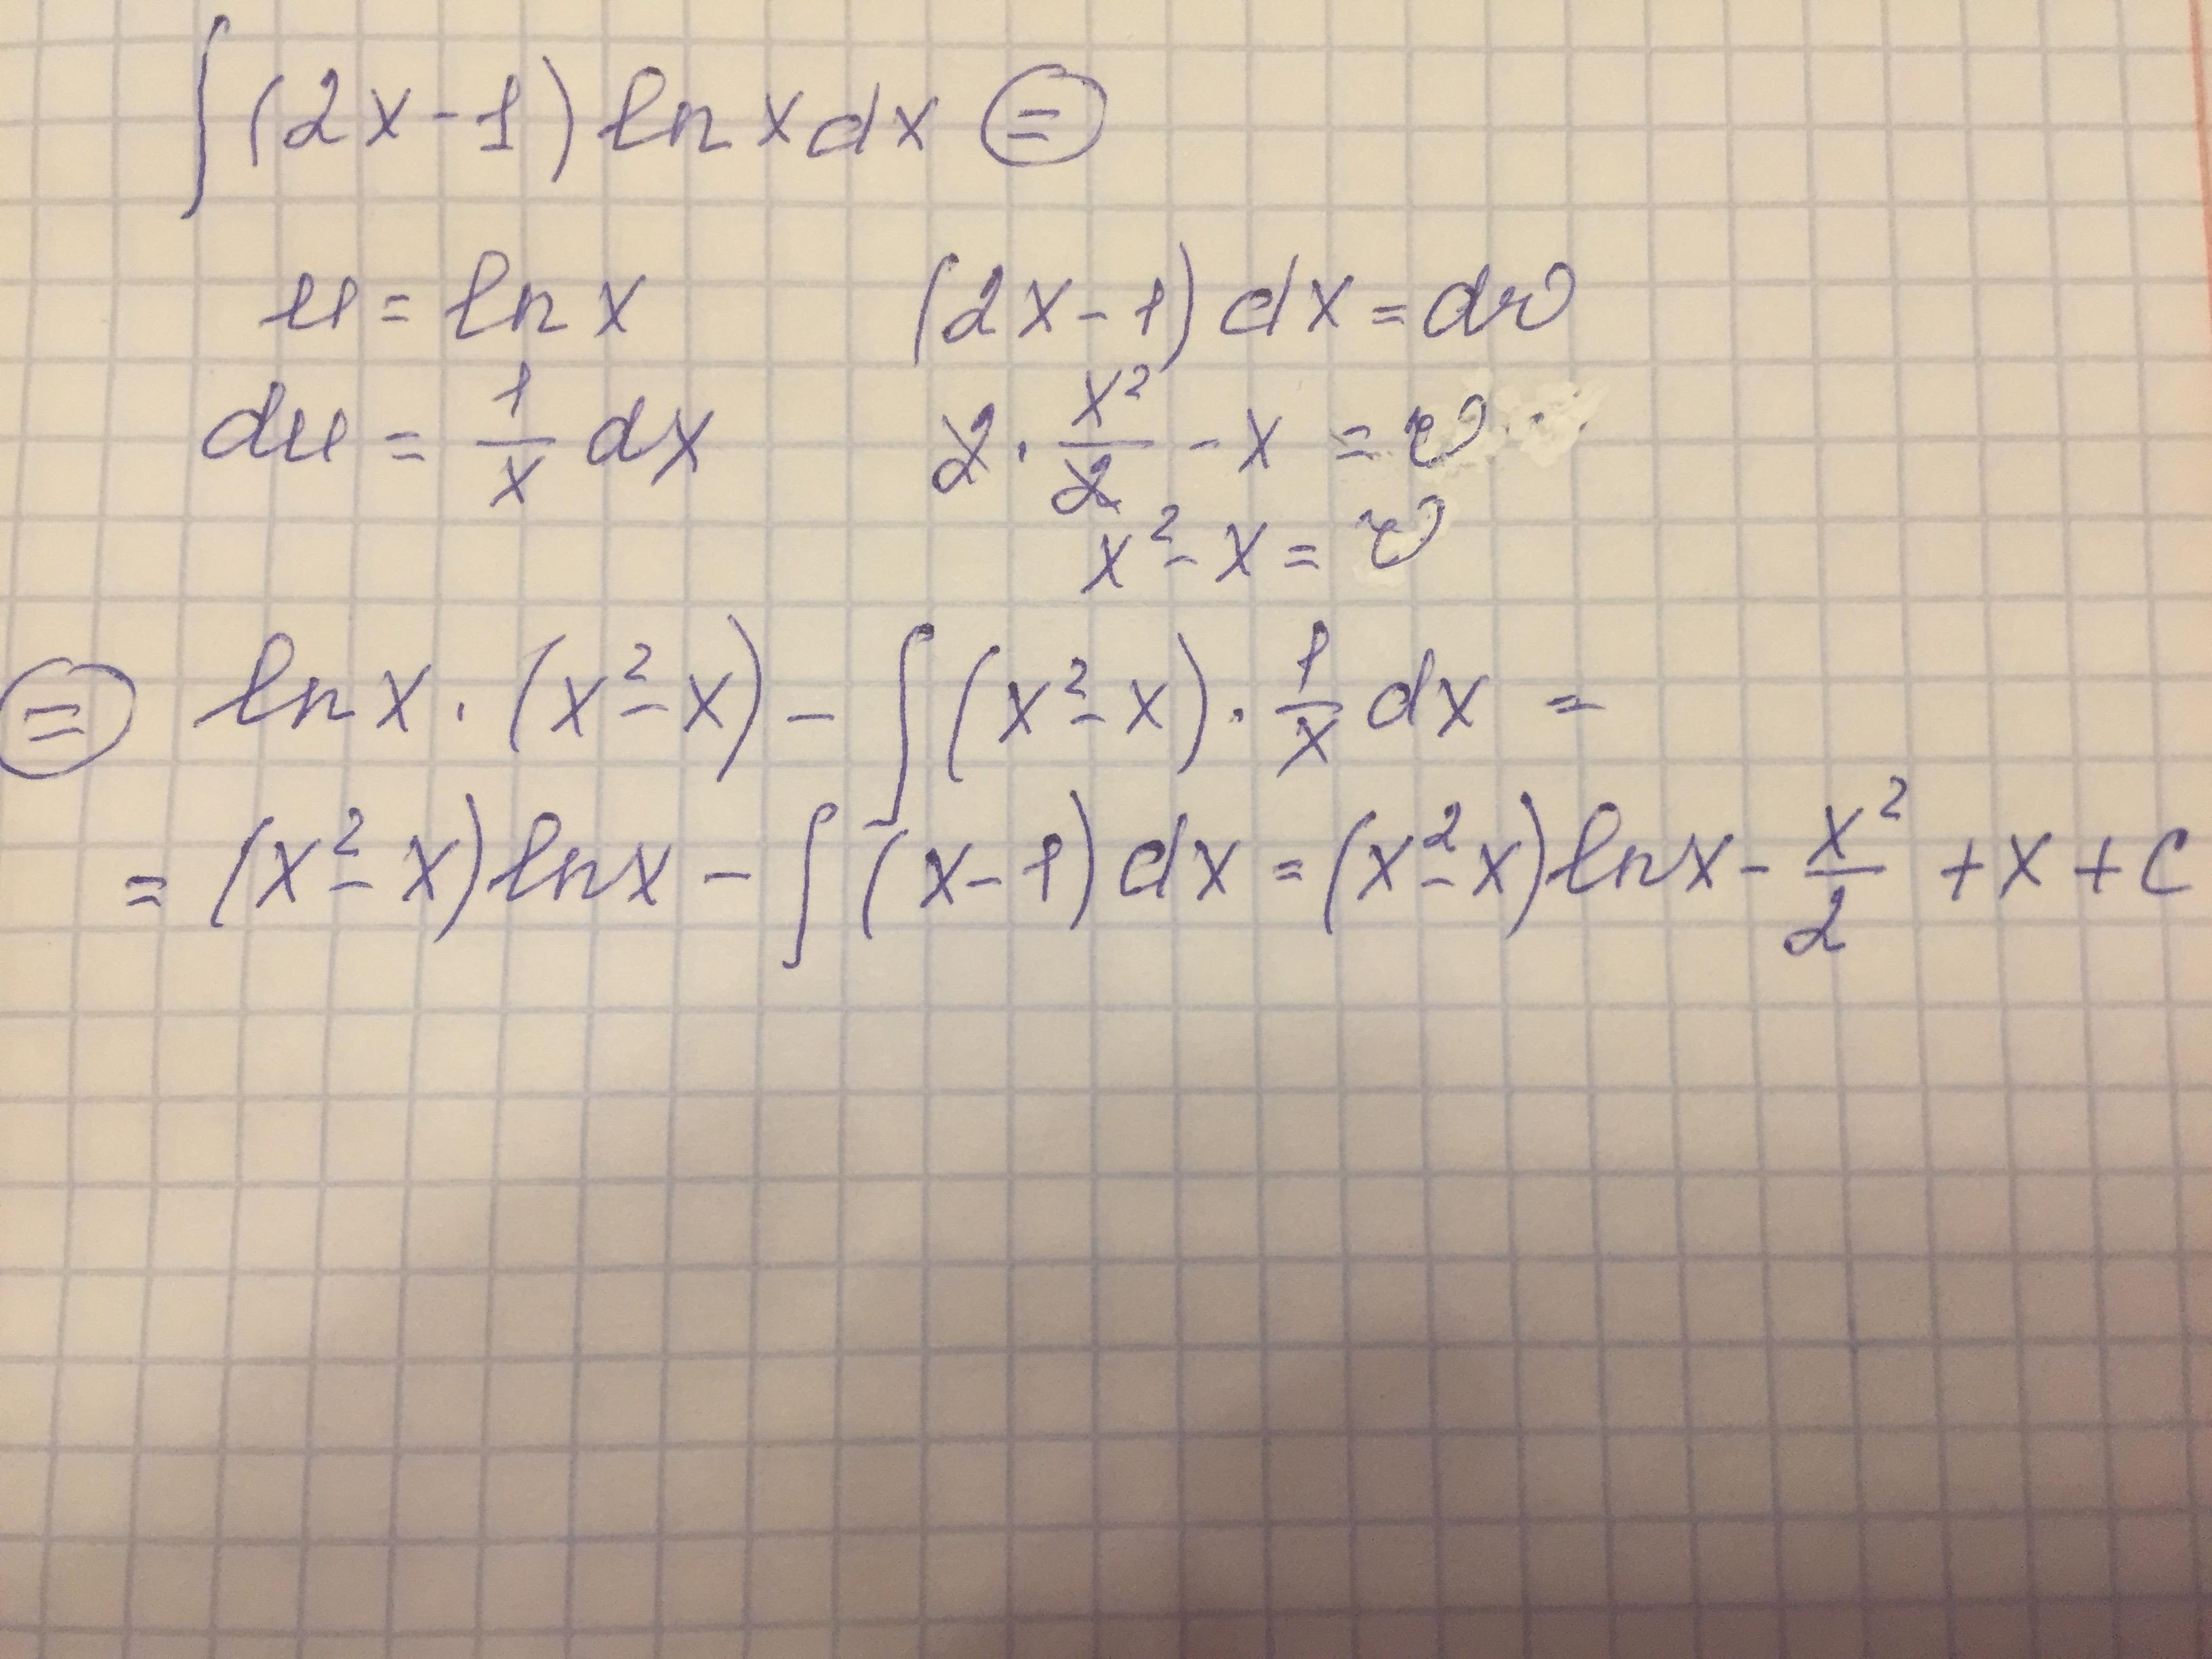 ∫(2x-1) ln x dx =
u = ln x (2x-1) dx = dv
du = 1/x dx 2 · x²/2 - x = v
x² - x = v
= ln x · (x² - x) - ∫(x² - x) · 1/x dx =
= (x² - x) ln x - ∫(x-1) dx = (x² - x) ln x - x²/2 + x + C